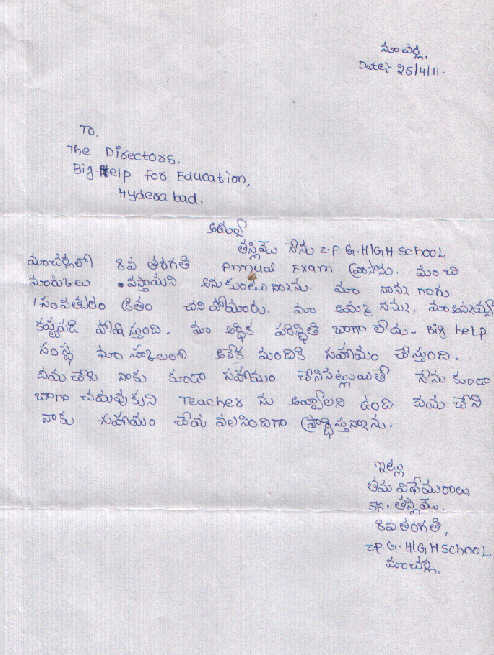 మాచర్ల,
Date:- 25/4/11.
To,
The Directors.
Big Help For Education,
Hyderabad.
ఆర్యా!
తస్లిమా నేను Z.P G. HIGH SCHOOL
మాచర్లలో 8వ తరగతి Annual Exam వ్రాసాను. మంచి
మార్కులు వస్తాయని అనుకుంటున్నాను. మా నాన్న గారు
1 సంవత్సరం క్రితం చనిపోయారు. మా అమ్మ నన్ను, మా
కష్టపడి పోషిస్తుంది. మా ఆర్థిక పరిస్థితి బాగా లేదు. Big help
సంస్థ మా స్కూలులో అనేక మందికి సహాయం చేస్తుంది.
దయచేసి నాకు కూడా సహాయం చేసినట్లయితే నేను కూడా
బాగా చదువుకుని Teacher ను అవ్వాలని ఉంది దయ చేసి
నాకు సహాయం చేయ వలసిందిగా ప్రార్థిస్తున్నాను.
ఇట్లు
తమ విధేయురాలు
SK. తస్లిమా.
8వ తరగతి,
ZP G. HIGH SCHOOL
మాచర్ల.